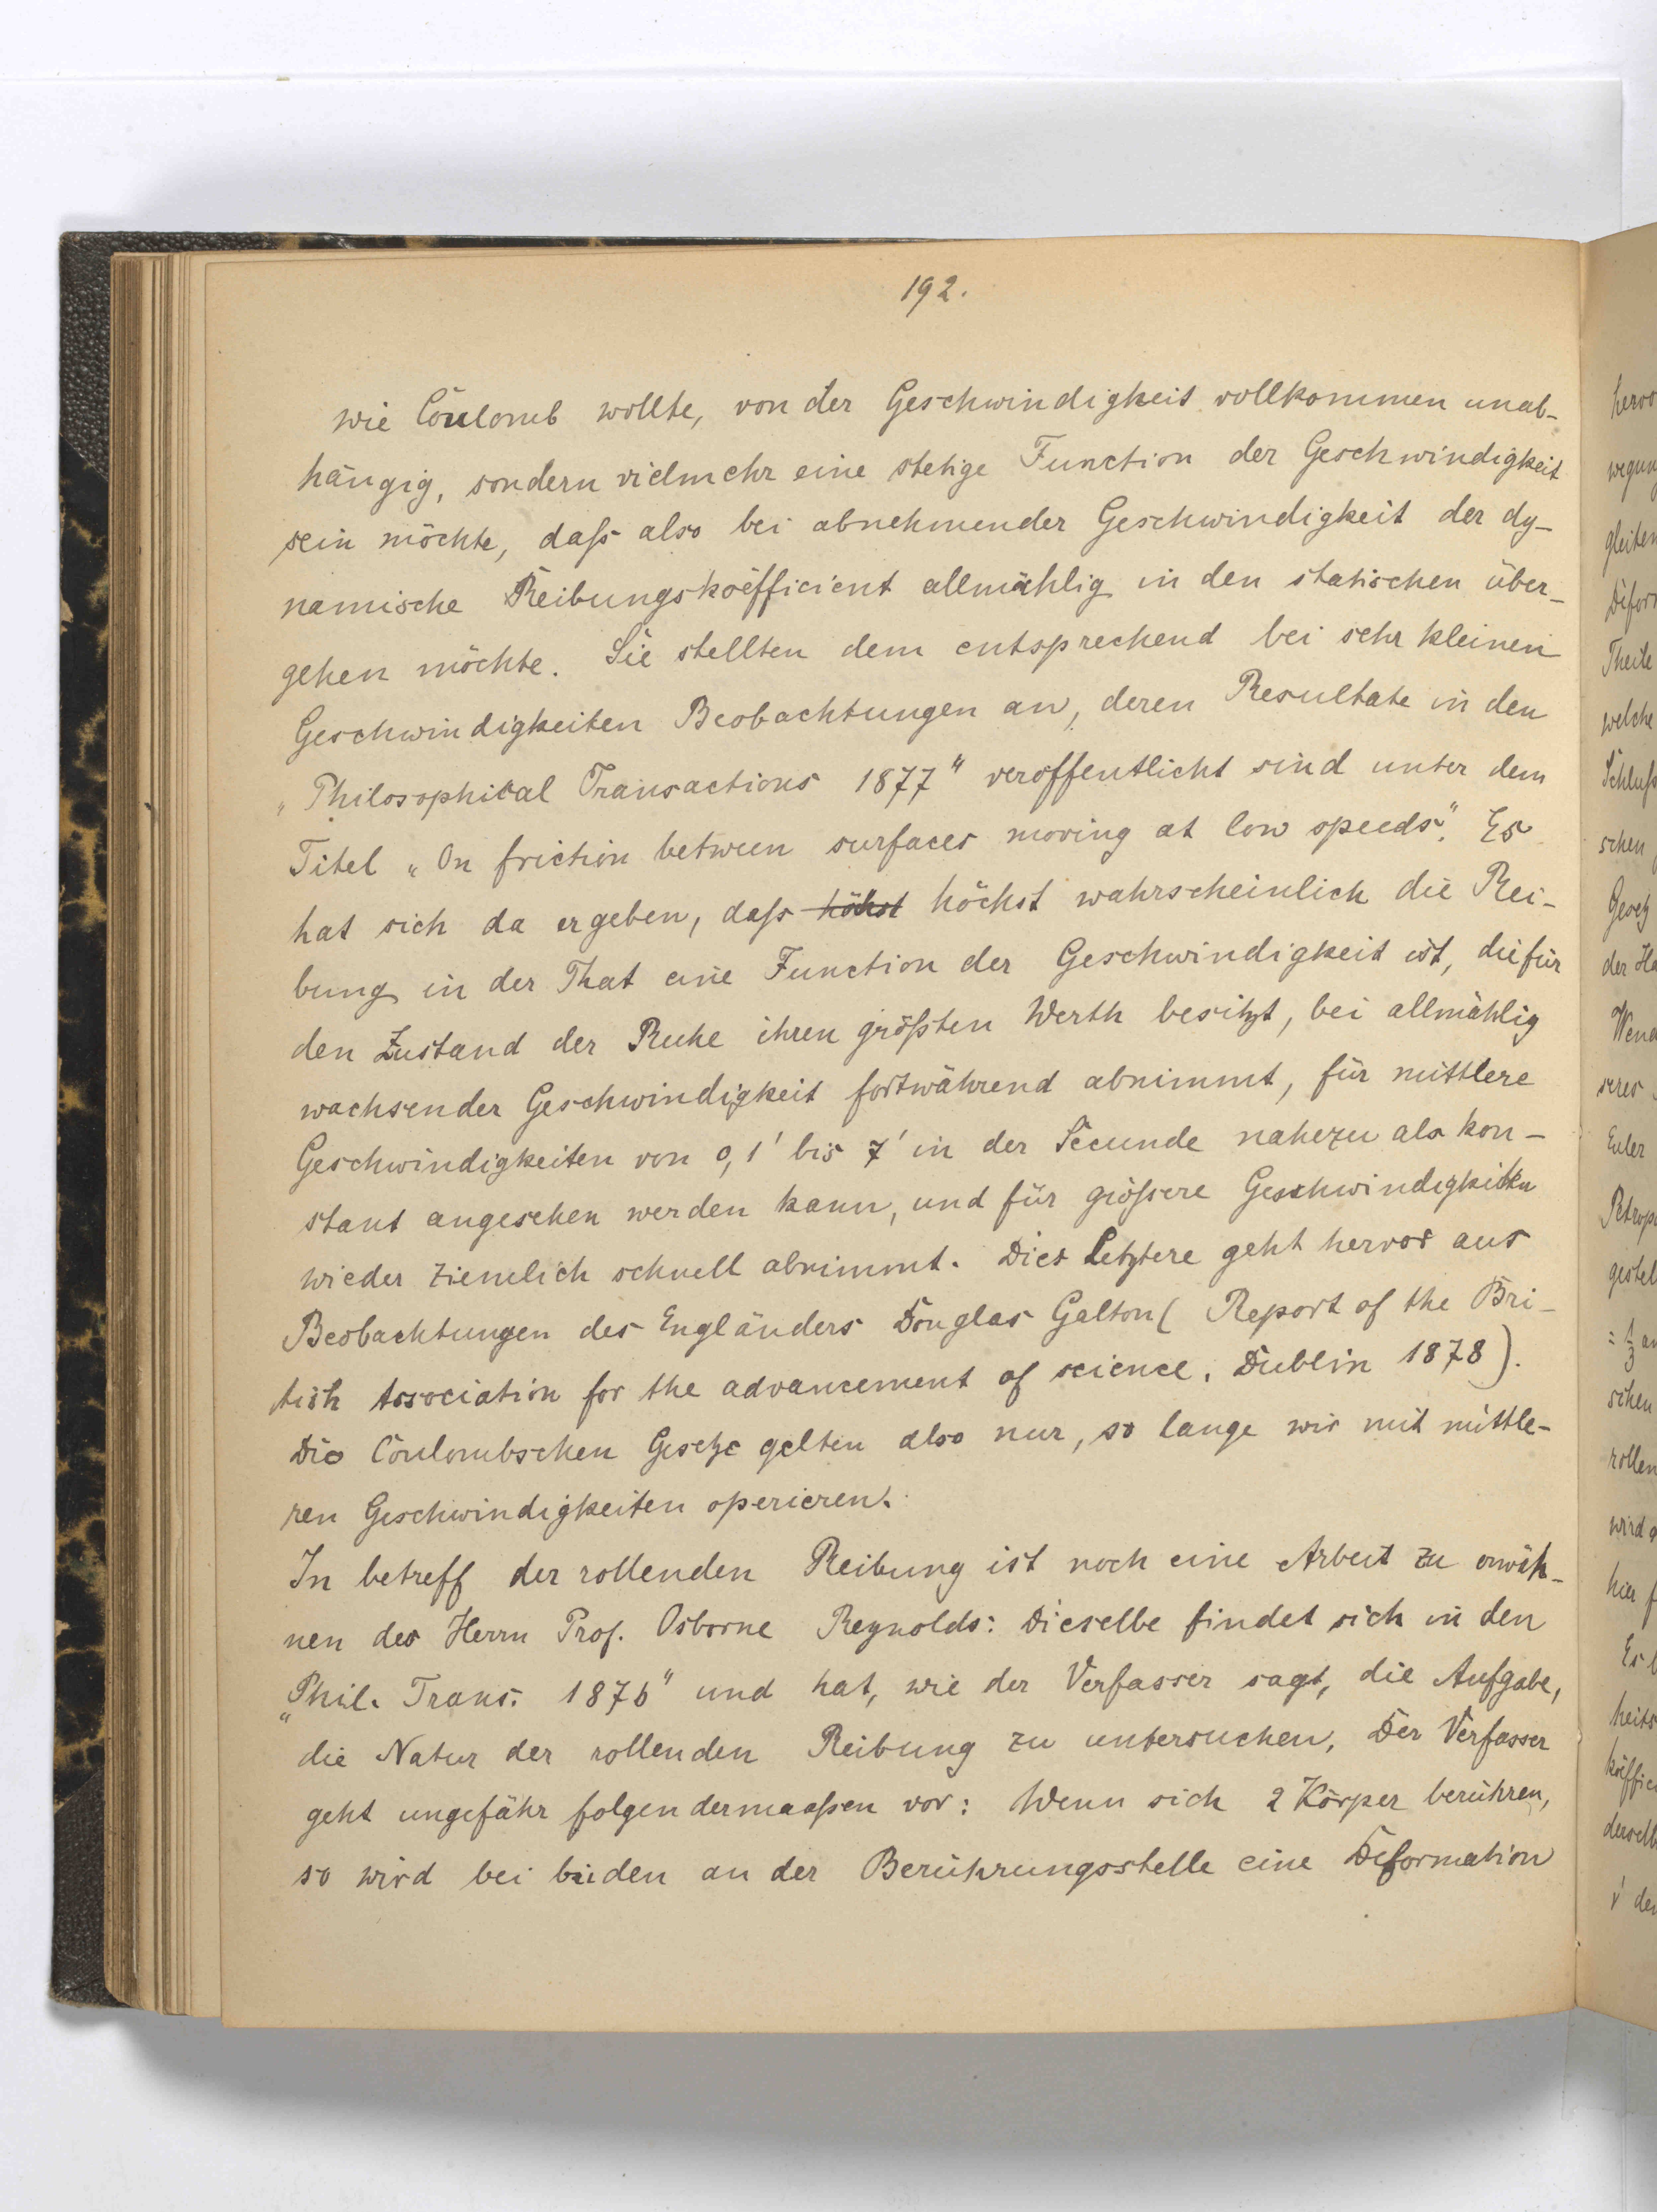 192.
wie Coulomb wollte, von der Geschwindigkeit vollkommen unab-
hängig, sondern vielmehr eine stetige Function der Geschwindigkeit
sein möchte, daſs also bei abnehmender Geschwindigkeit der dy-
namische Reibungskoëfficient allmählig in den statischen über-
gehen möchte. Sie stellten dem entsprechend bei sehr kleinen
Geschwindigkeiten Beobachtungen an, deren Resultate in den
„Philosophical Transactions 1877" veröffentlicht sind unter dem
Titel „On friction between surfaces moving at low speeds". Es
hat sich da ergeben, daſs höhst höchst wahrscheinlich die Rei-
bung in der That eine Function der Geschwindigkeit ist, die für
den Zustand der Ruhe ihren gröſsten Werth besitzt, bei allmählig
wachsender Geschwindigkeit fortwährend abnimmt, für mittlere
Geschwindigkeiten von 0,1' bis 7' in der Secunde nahezu als kon-
stant angesehen werden kann, und für gröſsere Geschwindigkeiten
wieder ziemlich schnell abnimmt. Dies Letztere geht hervor aus
Beobachtungen des Engländers Douglas Galton ( Report of the Bri-
tish Association for the advancement of science. Dublin 1878).
Die Coulombschen Gesetze gelten also nur, so lange wir mit mittle-
ren Geschwindigkeiten operieren.
In betreff der rollenden Reibung ist noch eine Arbeit zu erwäh-
nen des Herrn Prof. Osborne Reynolds: Dieselbe findet sich in den
„Phil. Trans. 1876" und hat, wie der Verfasser sagt, die Aufgabe,
die Natur der rollenden Reibung zu untersuchen. Der Verfasser
geht ungefähr folgendermaaſsen vor: Wenn sich 2 Körper berühren,
so wird bei beiden an der Berührungsstelle eine Deformation